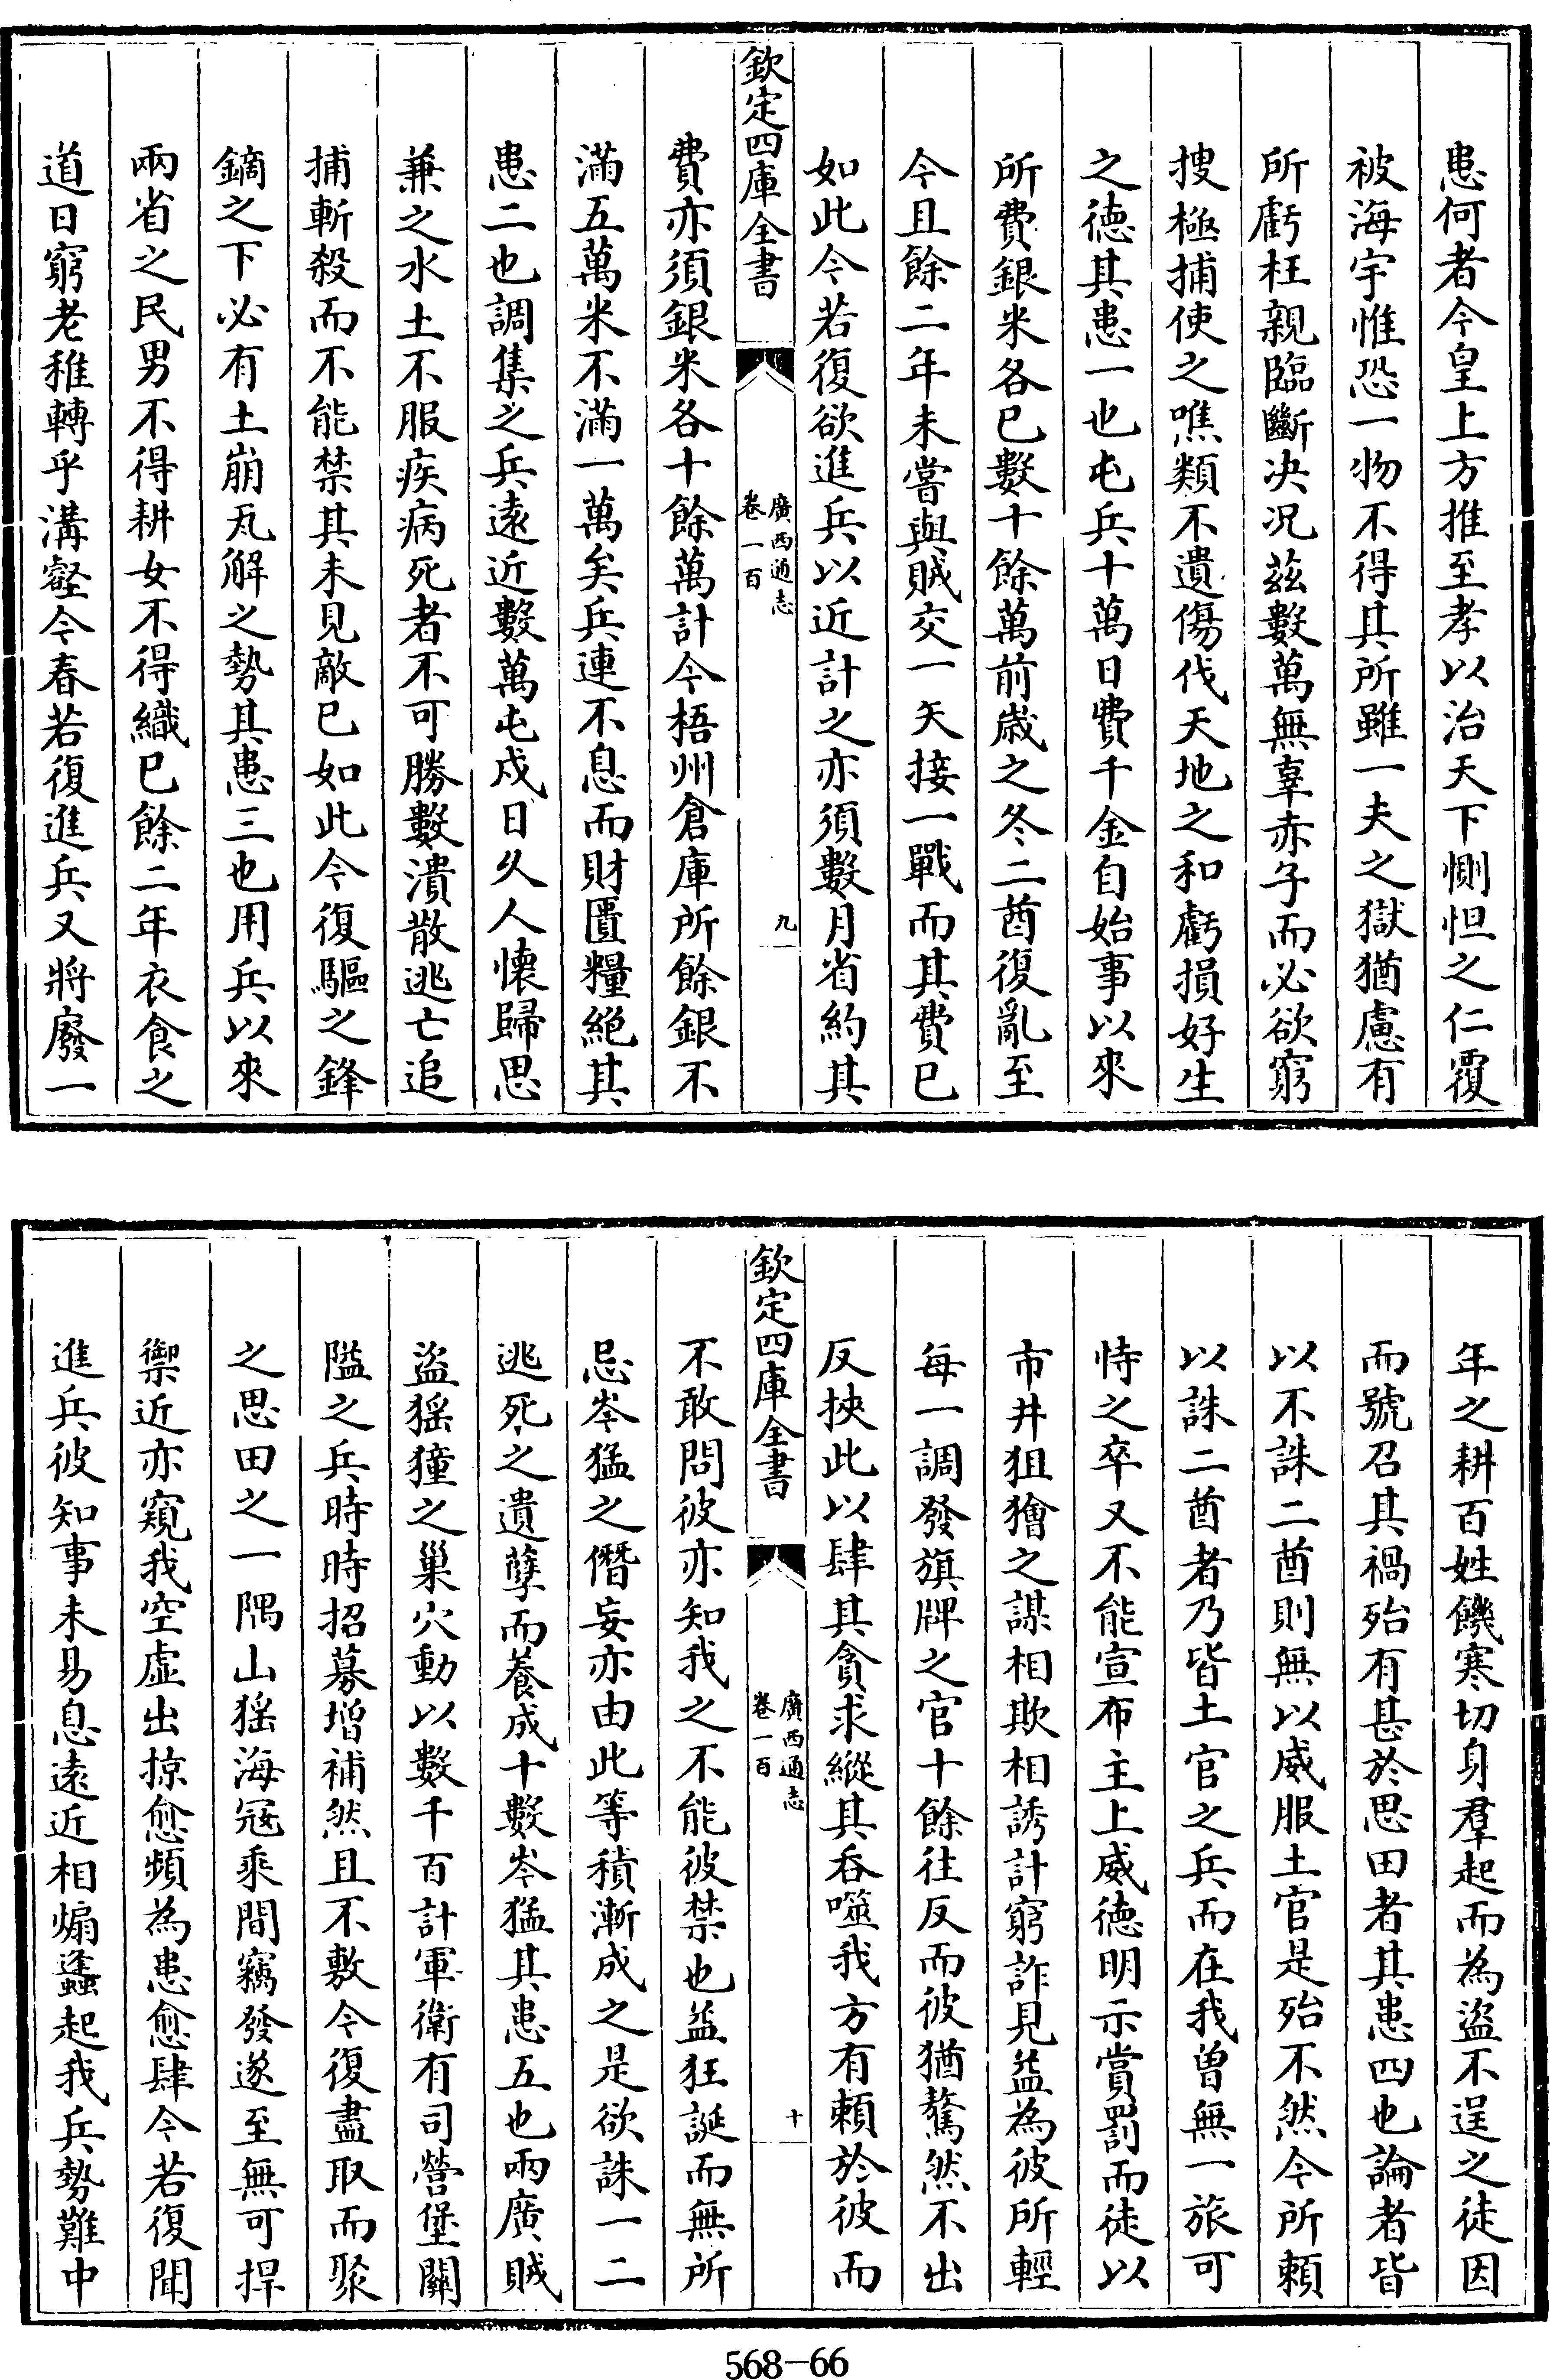 患何者今皇上方推至孝以治天下惻怛之仁覆
被海宇惟恐一物不得其所雖一夫之獄猶慮有
所虧枉親臨斷决况茲數萬無辜赤子而必欲窮
搜極捕使之噍類不遺傷伐天地之和虧損好生
之德其患一也屯兵十萬日費千金自始事以來
所費銀米各巳數十餘萬前歲之冬二酋復亂至
今且餘二年未嘗與賊交一矢接一戰而其費巳
如此今若復欲進兵以近計之亦須數月省約其
欽定四庫全書
廣西通志
卷一百
九
費亦須銀米各十餘萬計今梧州倉庫所餘銀不
滿五萬米不滿一萬矣兵連不息而財匱糧絕其
患二也調集之兵遠近數萬屯戍日久人懷歸思
兼之水土不服疾病死者不可勝數潰散逃亡追
捕斬殺而不能禁其未見敵巳如此今復驅之鋒
鏑之下必有土崩瓦解之勢其患三也用兵以來
兩省之民男不得耕女不得織巳餘二年衣食之
道日窮老稚轉乎溝壑今春若復進兵又將廢一
年之耕百姓饑寒切身羣起而為盜不逞之徒因
而號召其禍殆有甚於思田者其患四也論者皆
以不誅二酋則無以威服土官是殆不然今所賴
以誅二酋者乃皆土官之兵而在我曾無一旅可
恃之卒又不能宣布主上威德明示賞罰而徒以
市井狙獪之謀相欺相誘計窮詐見益為彼所輕
每一調發旗牌之官十餘往反而彼猶驁然不出
反挾此以肆其貪求縱其吞噬我方有賴於彼而
欽定四庫全書
廣西通志
卷一百
十
不敢問彼亦知我之不能彼禁也益狂誕而無所
忌岑猛之僭妄亦由此等積漸成之是欲誅一二
逃死之遺孽而養成十數岑猛其患五也兩廣賊
盜猺獞之巢穴動以數千百計軍衛有司營堡關
隘之兵時時招募增補然且不敷今復盡取而聚
之思田之一隅山猺海冦乘間竊發遂至無可捍
禦近亦窺我空虛出掠愈頻為患愈肆今若復聞
進兵彼知事未易息遠近相煽蠭起我兵勢難中
568—66